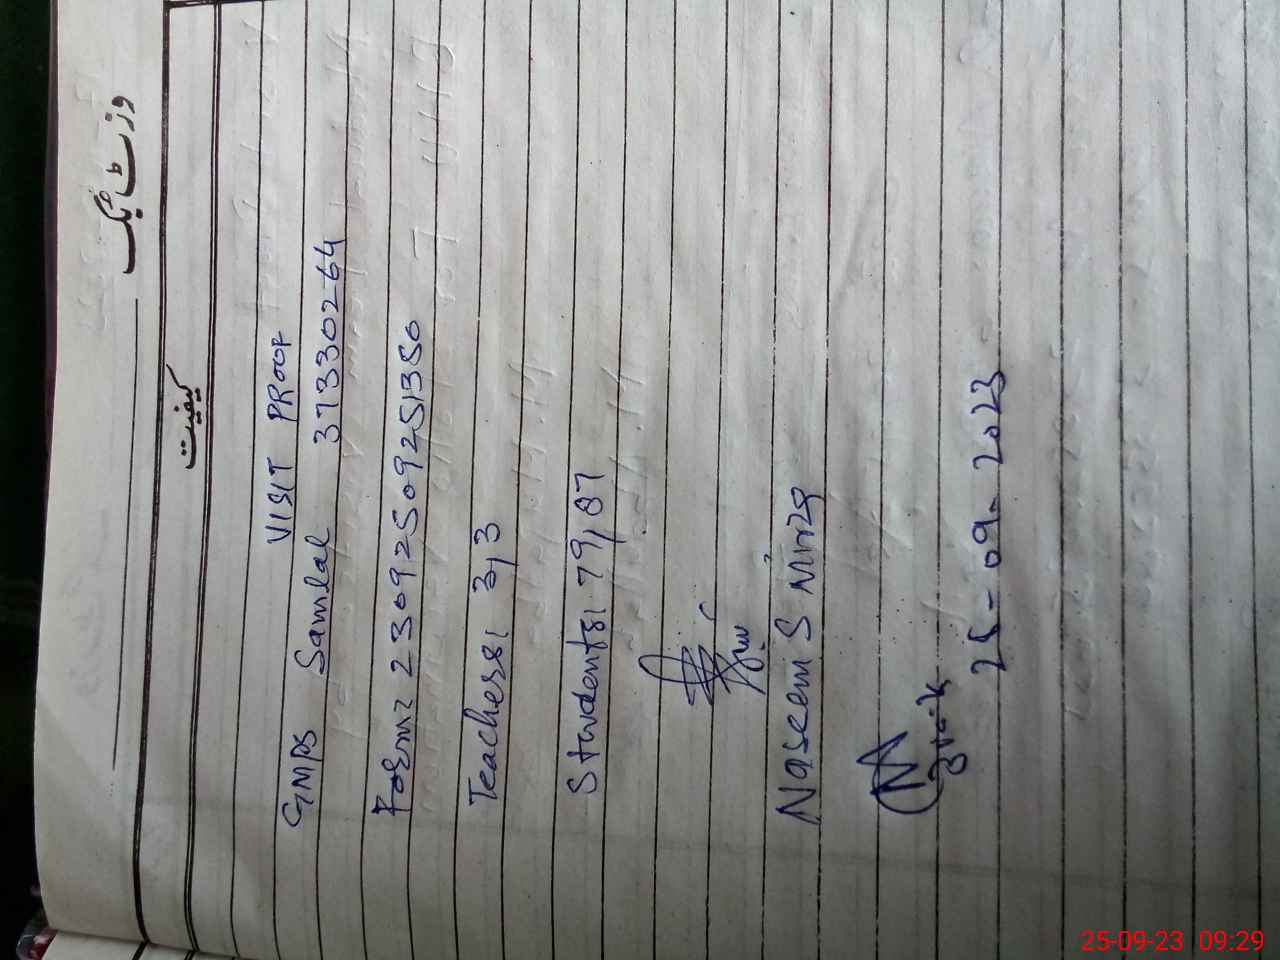 وزٹ بُک
کیفیت
VISIT PROOF
GMPS Samlal 37330264
Form: 23092509251350
Teachers: 3,3
Students: 79,87
Naseem S Mirza
25-09-2023
25-09-23 09:29